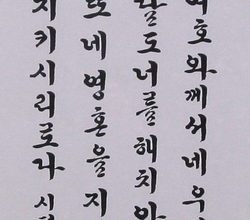 여호와께서 네 우
달도 너를 해치 아
또 네 영혼을 지
지키시리로다 시